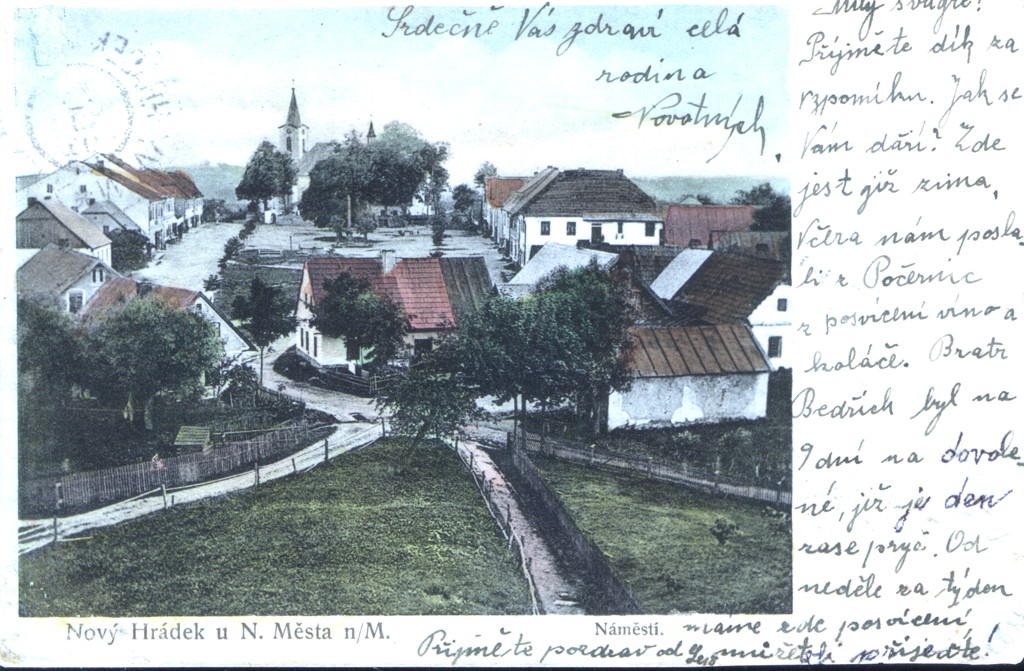 Srdečně Vás zdraví celá
rodina
Novotných
Milý švagře!
Přijměte dík za
vzpomínku. Jak se
Vám daří? Zde
jest již zima,
Včera nám posla-
li z Počernic
z posvícení víno a
koláče. Bratr
Bedřich byl na
9 dní na dovole-
né, již je den
zase pryč. Od
neděle za týden
máme zde posvícení
můžete-li přijeďte!
Přijměte pozdrav od
Nový Hrádek u N. Města n/M.
Náměstí.